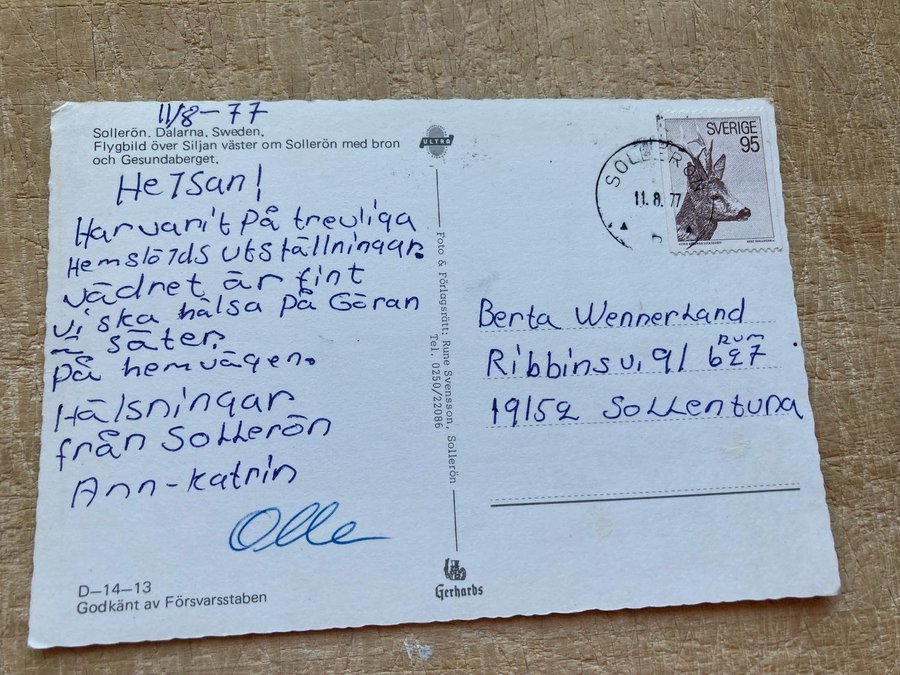 11/8-77
Sollerön. Dalarna. Sweden.
Flygbild över Siljan väster om Sollerön med bron
och Gesundaberget.
Hejsan!
Har varit på trevliga
Hemslöjds utställningar.
vädret är fint
vi ska hälsa på Göran
i säter.
på hemvägen.
Hälsningar
från Sollerön
Ann-Katrin
Olle
D-14-13
Godkänt av Försvarsstaben
ULTRA
Foto & Förlagsrätt: Rune Svensson, Sollerön
Tel. 0250/22086
Gerhards
SOLLERÖN
11.8.77
SVERIGE
95
Berta Wennerland
Ribbinsv. 91 rum 627
19152 Sollentuna